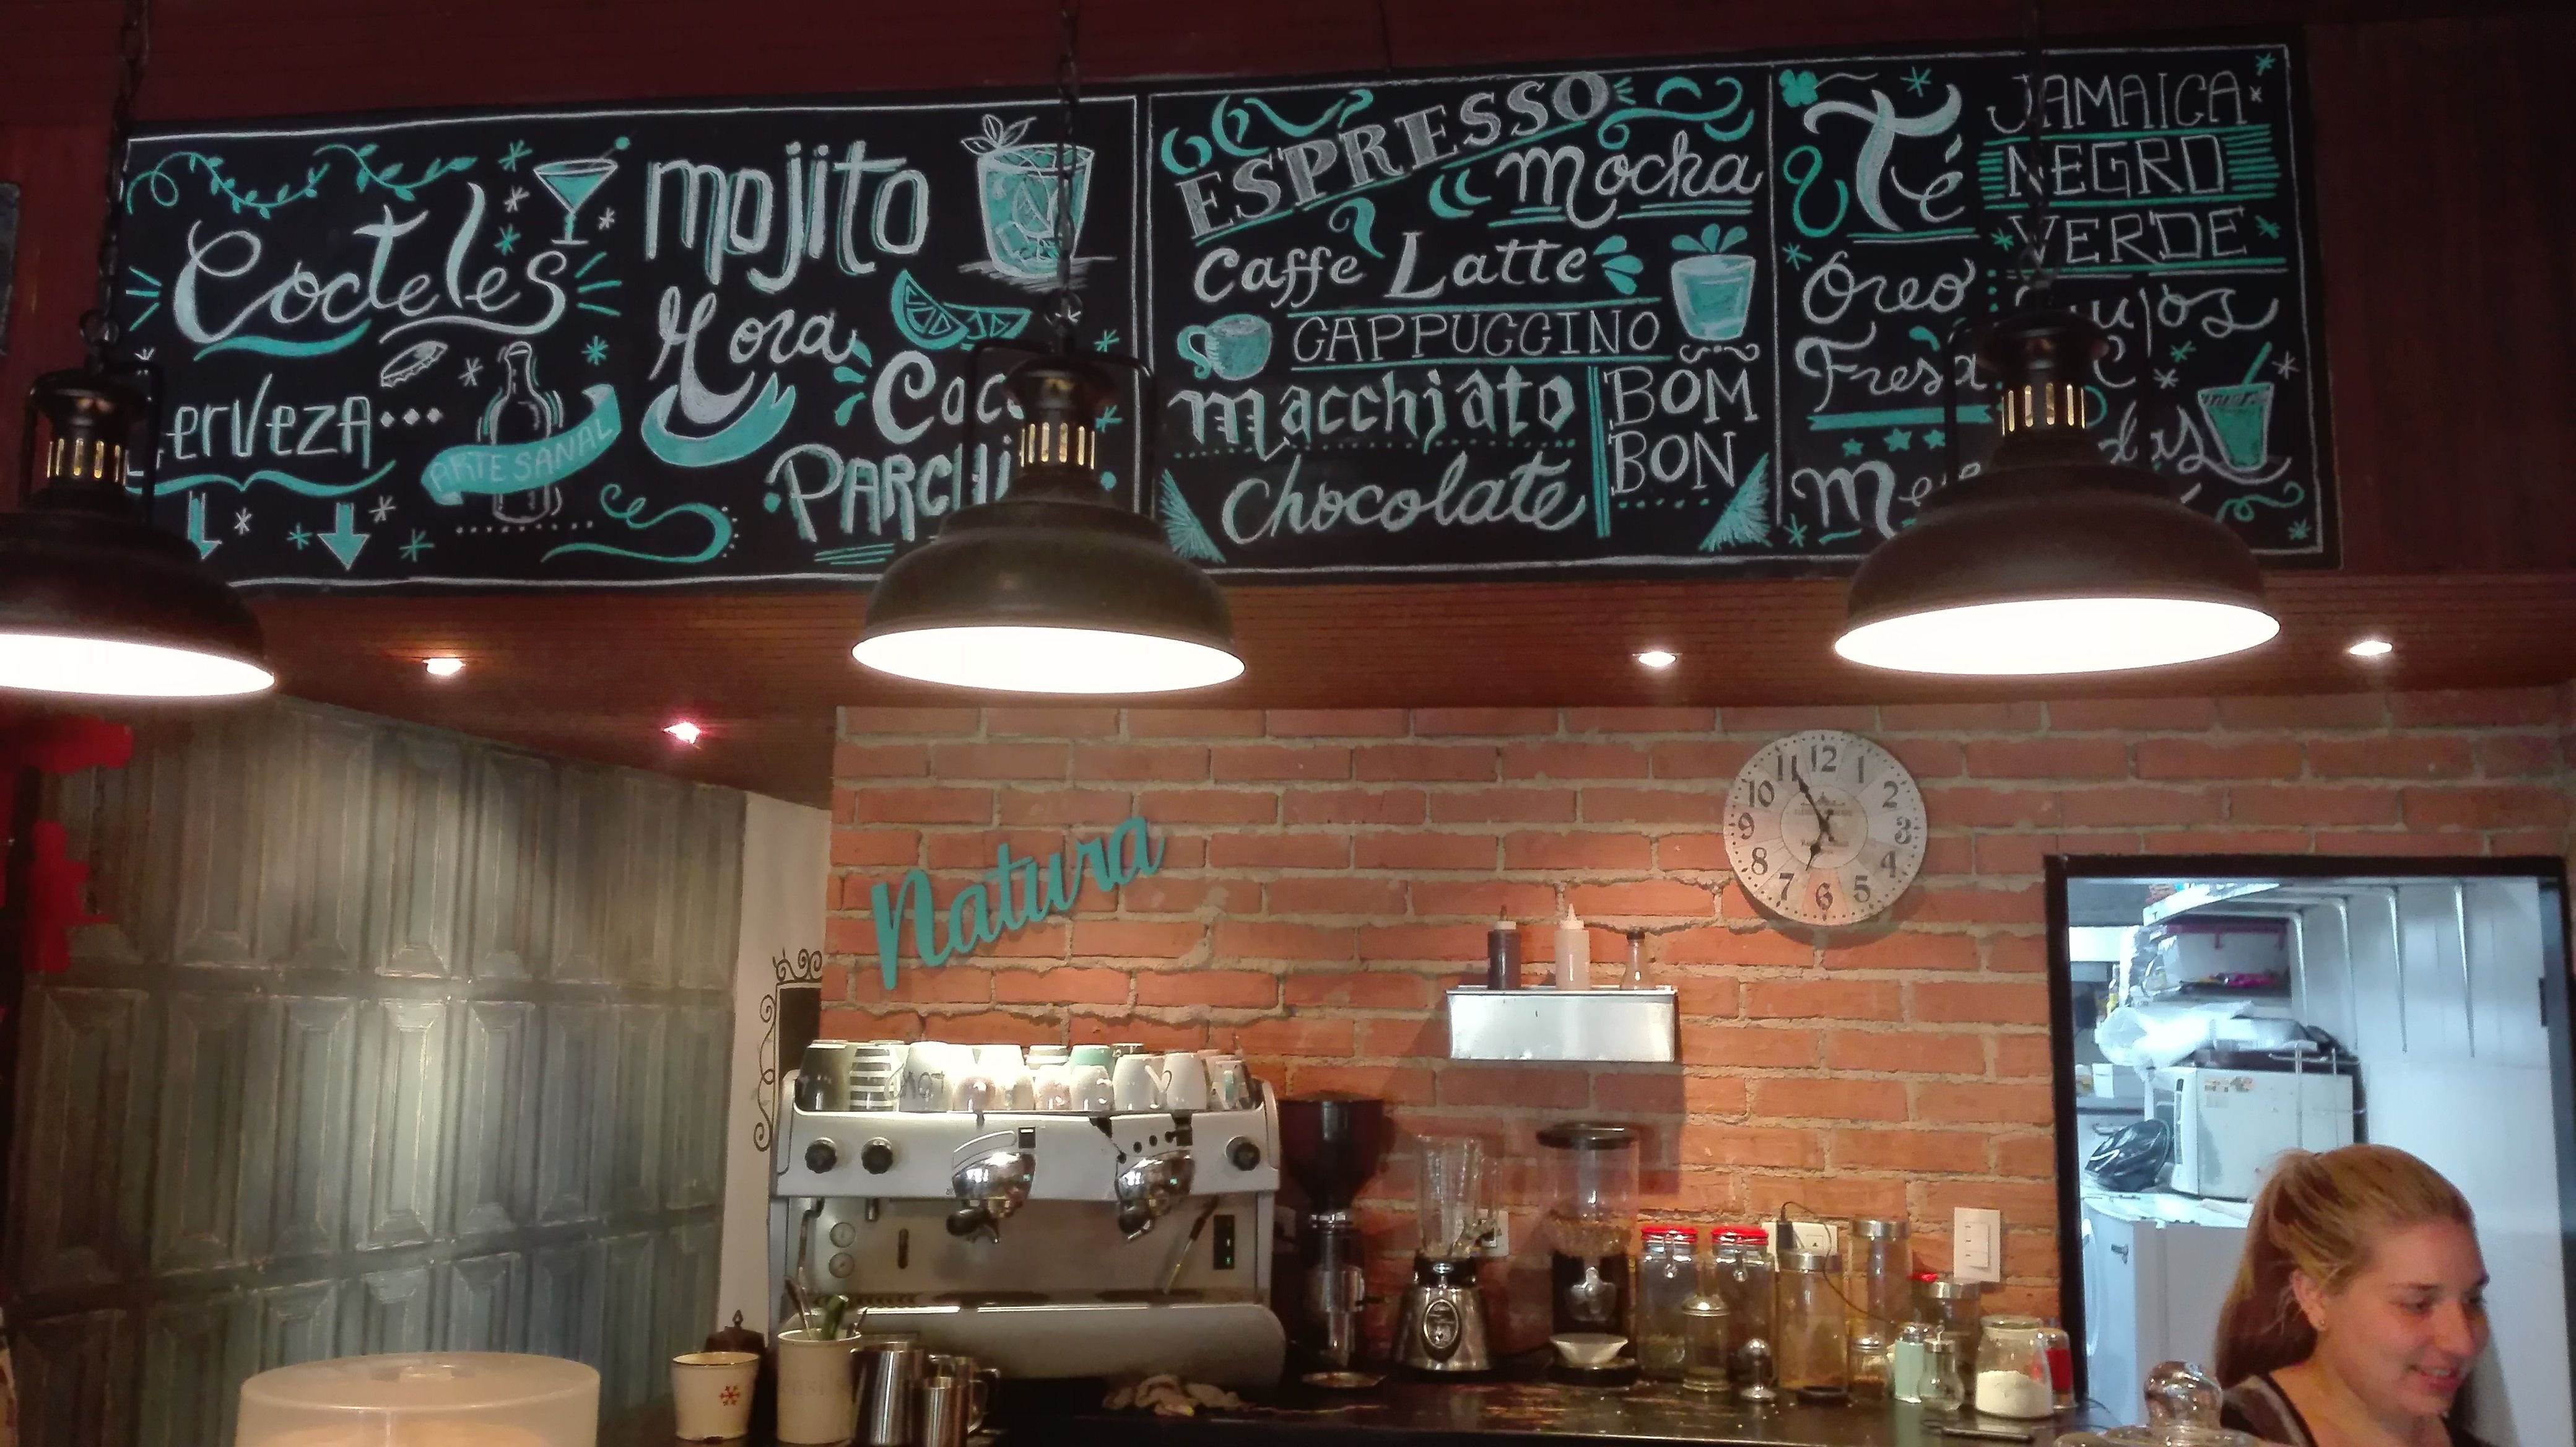 Cocteles
mojito
Mora
ARTESANAL
ESPRESSO
Mocka
Caffe Latte
CAPPUCCINO
Macchiato
BOM
BON
Chocolate
Té
JAMAICA
NEGRO
VERDE
Oreo
Fresa
Natura
12
1
2
3
4
5
6
7
8
9
10
11